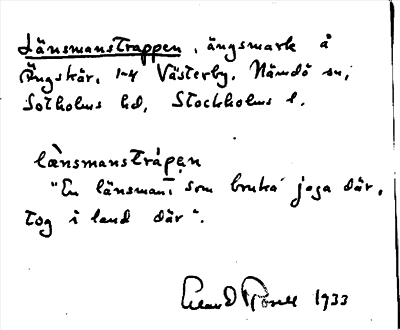 Länsmanstrappen, ängsmark å
Ängskär, 1-4 Västerby, Nämdö sn,
Sotholms hd, Stockholms l.
länsmanstrápẹn
"En länsman som bruka' jaga där,
tog i land där".
1933